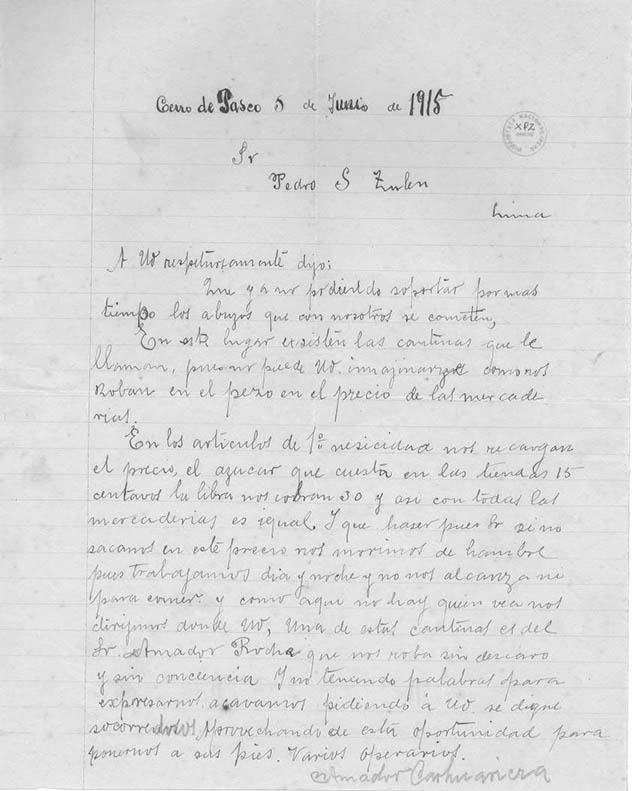 Cerro de Pasco 5 de Junio de 1915
Sr
Pedro S Zulen
Lima
A Ud respetuosamente dijo:
Que ya no pudiendo soportar por mas
tiempo los abuzos que con nosotros se cometen,
En este lugar exsisten las cantinas que le
llaman, pues no puede Ud. inmajinarze como nos
Roban en el pezo en el precio de las mercade
rias.
En los articulos de 1º nesicidad nos recargan
el precio, el azucar que cuesta en las tiendas 15
centavos la libra nos cobran 30 y asi con todas las
mercaderias es igual. I que haser pues Sr si no
sacamos en este precio nos morimos de hambre
pues trabajamos dia y noche y no nos alcanza ni
para comer y como aqui no hay quien vea nos
dirijimos donde Ud, Una de estas cantinas es del
Sr. Amador Rocha que nos roba sin descaro
y sin conciencia Y no teniendo palabras para
expresarnos acavamos pidiendo á Ud. se digne
socorrernos Aprovechando de esta oportunidad para
ponernos a sus pies. Varios operarios.
Amador Carhuaricra
XPZ